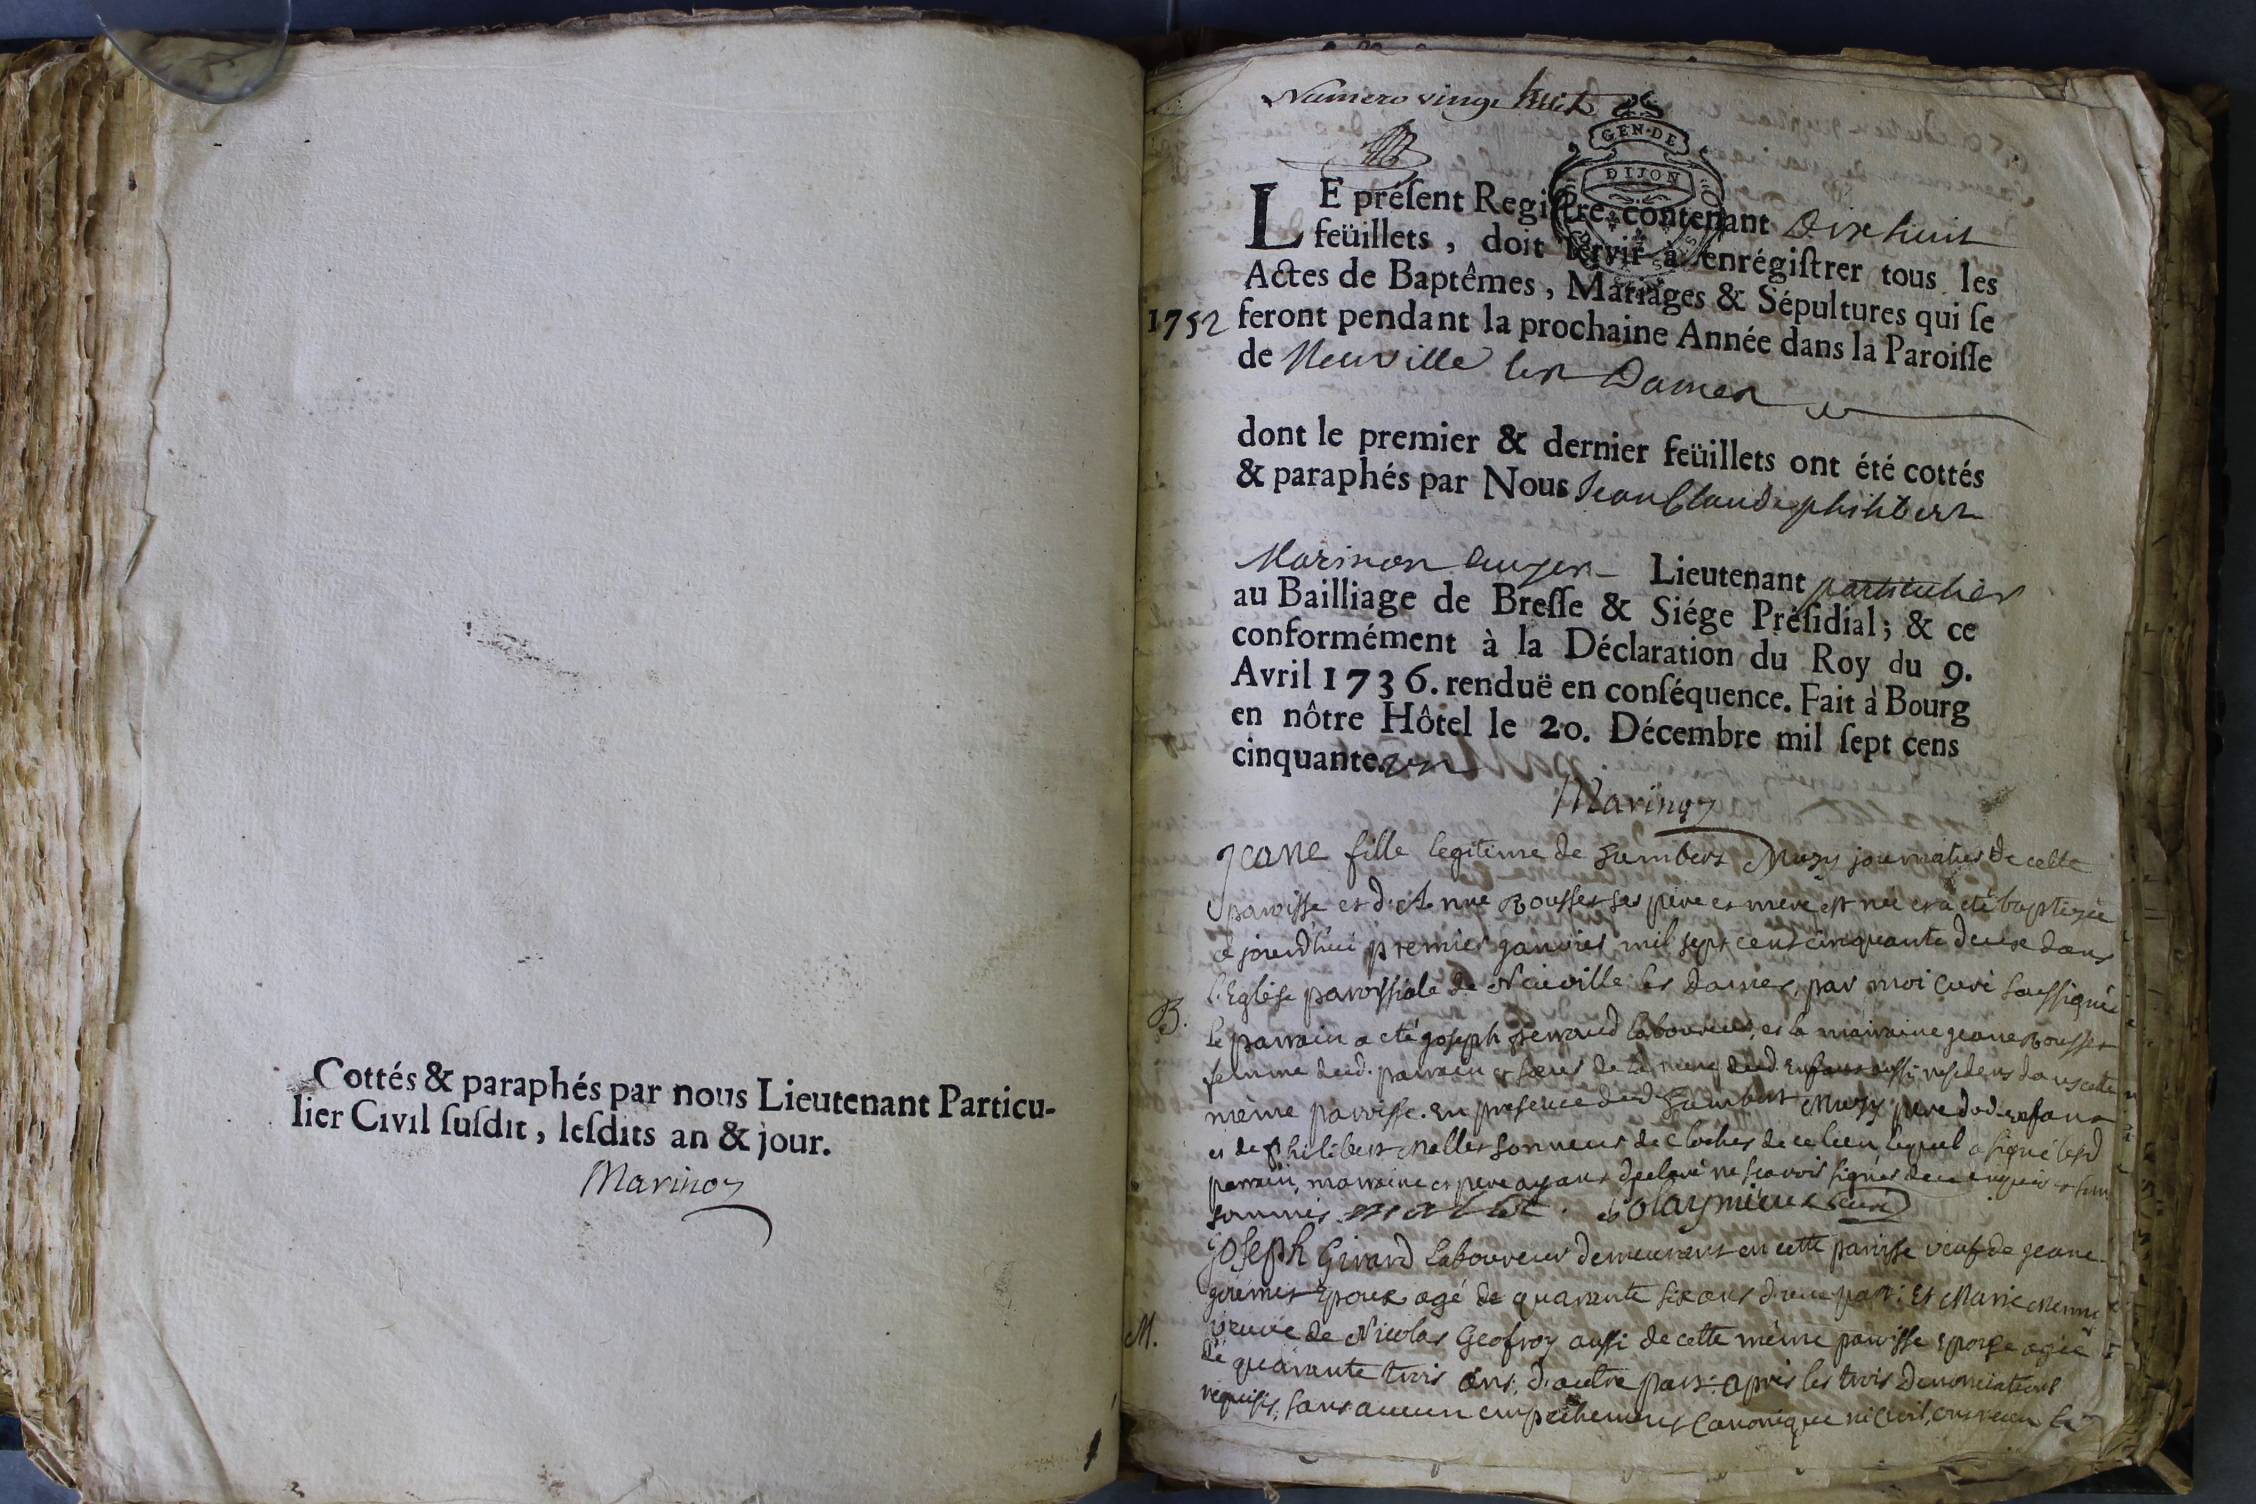 Cottés & paraphés par nous Lieutenant Particu-
lier Civil ſuſdit, leſdits an & jour.
Marinon
Numero vingt huit
GEN·DE
DIJON
LE préſent Regiſtre contenant Dix huit
feüillets, doit ſervir à enrégiſtrer tous les
Actes de Baptêmes, Mariages & Sépultures qui ſe
1752 feront pendant la prochaine Année dans la Paroiſſe
de Neuville les Dames
dont le premier & dernier feüillets ont été cottés
& paraphés par Nous Jean Claude philibert
Marinon Lieutenant particulier
au Bailliage de Breſſe & Siége Préſidial; & ce
conformément à la Déclaration du Roy du 9.
Avril 1736. renduë en conſéquence. Fait à Bourg
en nôtre Hôtel le 20. Décembre mil ſept cens
cinquante.un
Marinon
Jeane fille legitime de Humbert Muzy journalier de cette
paroisse et d'Anne Rousset ses pere et mere est née et a eté baptizée
ce jourd'hui premier janvier mil sept cent cinquante deux dans
l'Eglise paroissiale de Neuville les Dames, par moi curé soussigné
B. le parrain a eté joseph laboureur, et la marraine jeane Rousset
femme dud. parrain et sœur de la mere dud. Enfant aussi residens dans cette
même paroisse. En presence dud Humbert Muzy pere dud. enfant
et de philibert Mallet sonneur de cloches de ce lieu lequel a signé lesd
parrain, marraine et pere ayans declaré ne scavoir signer de ce enquis et
sommés mallet. curé
joseph Girard laboureur demeurant en cette paroisse veuf de jeane
Epoux agé de quarante six ans d'une part; Et Marie
M. veuve de Nicolas Geofroy aussi de cette même paroisse Epouse agée
de quarante trois ans, d'autre part: après les trois Denonciations
requises, sans aucun empechement Canonique ni Civil, ont recu la